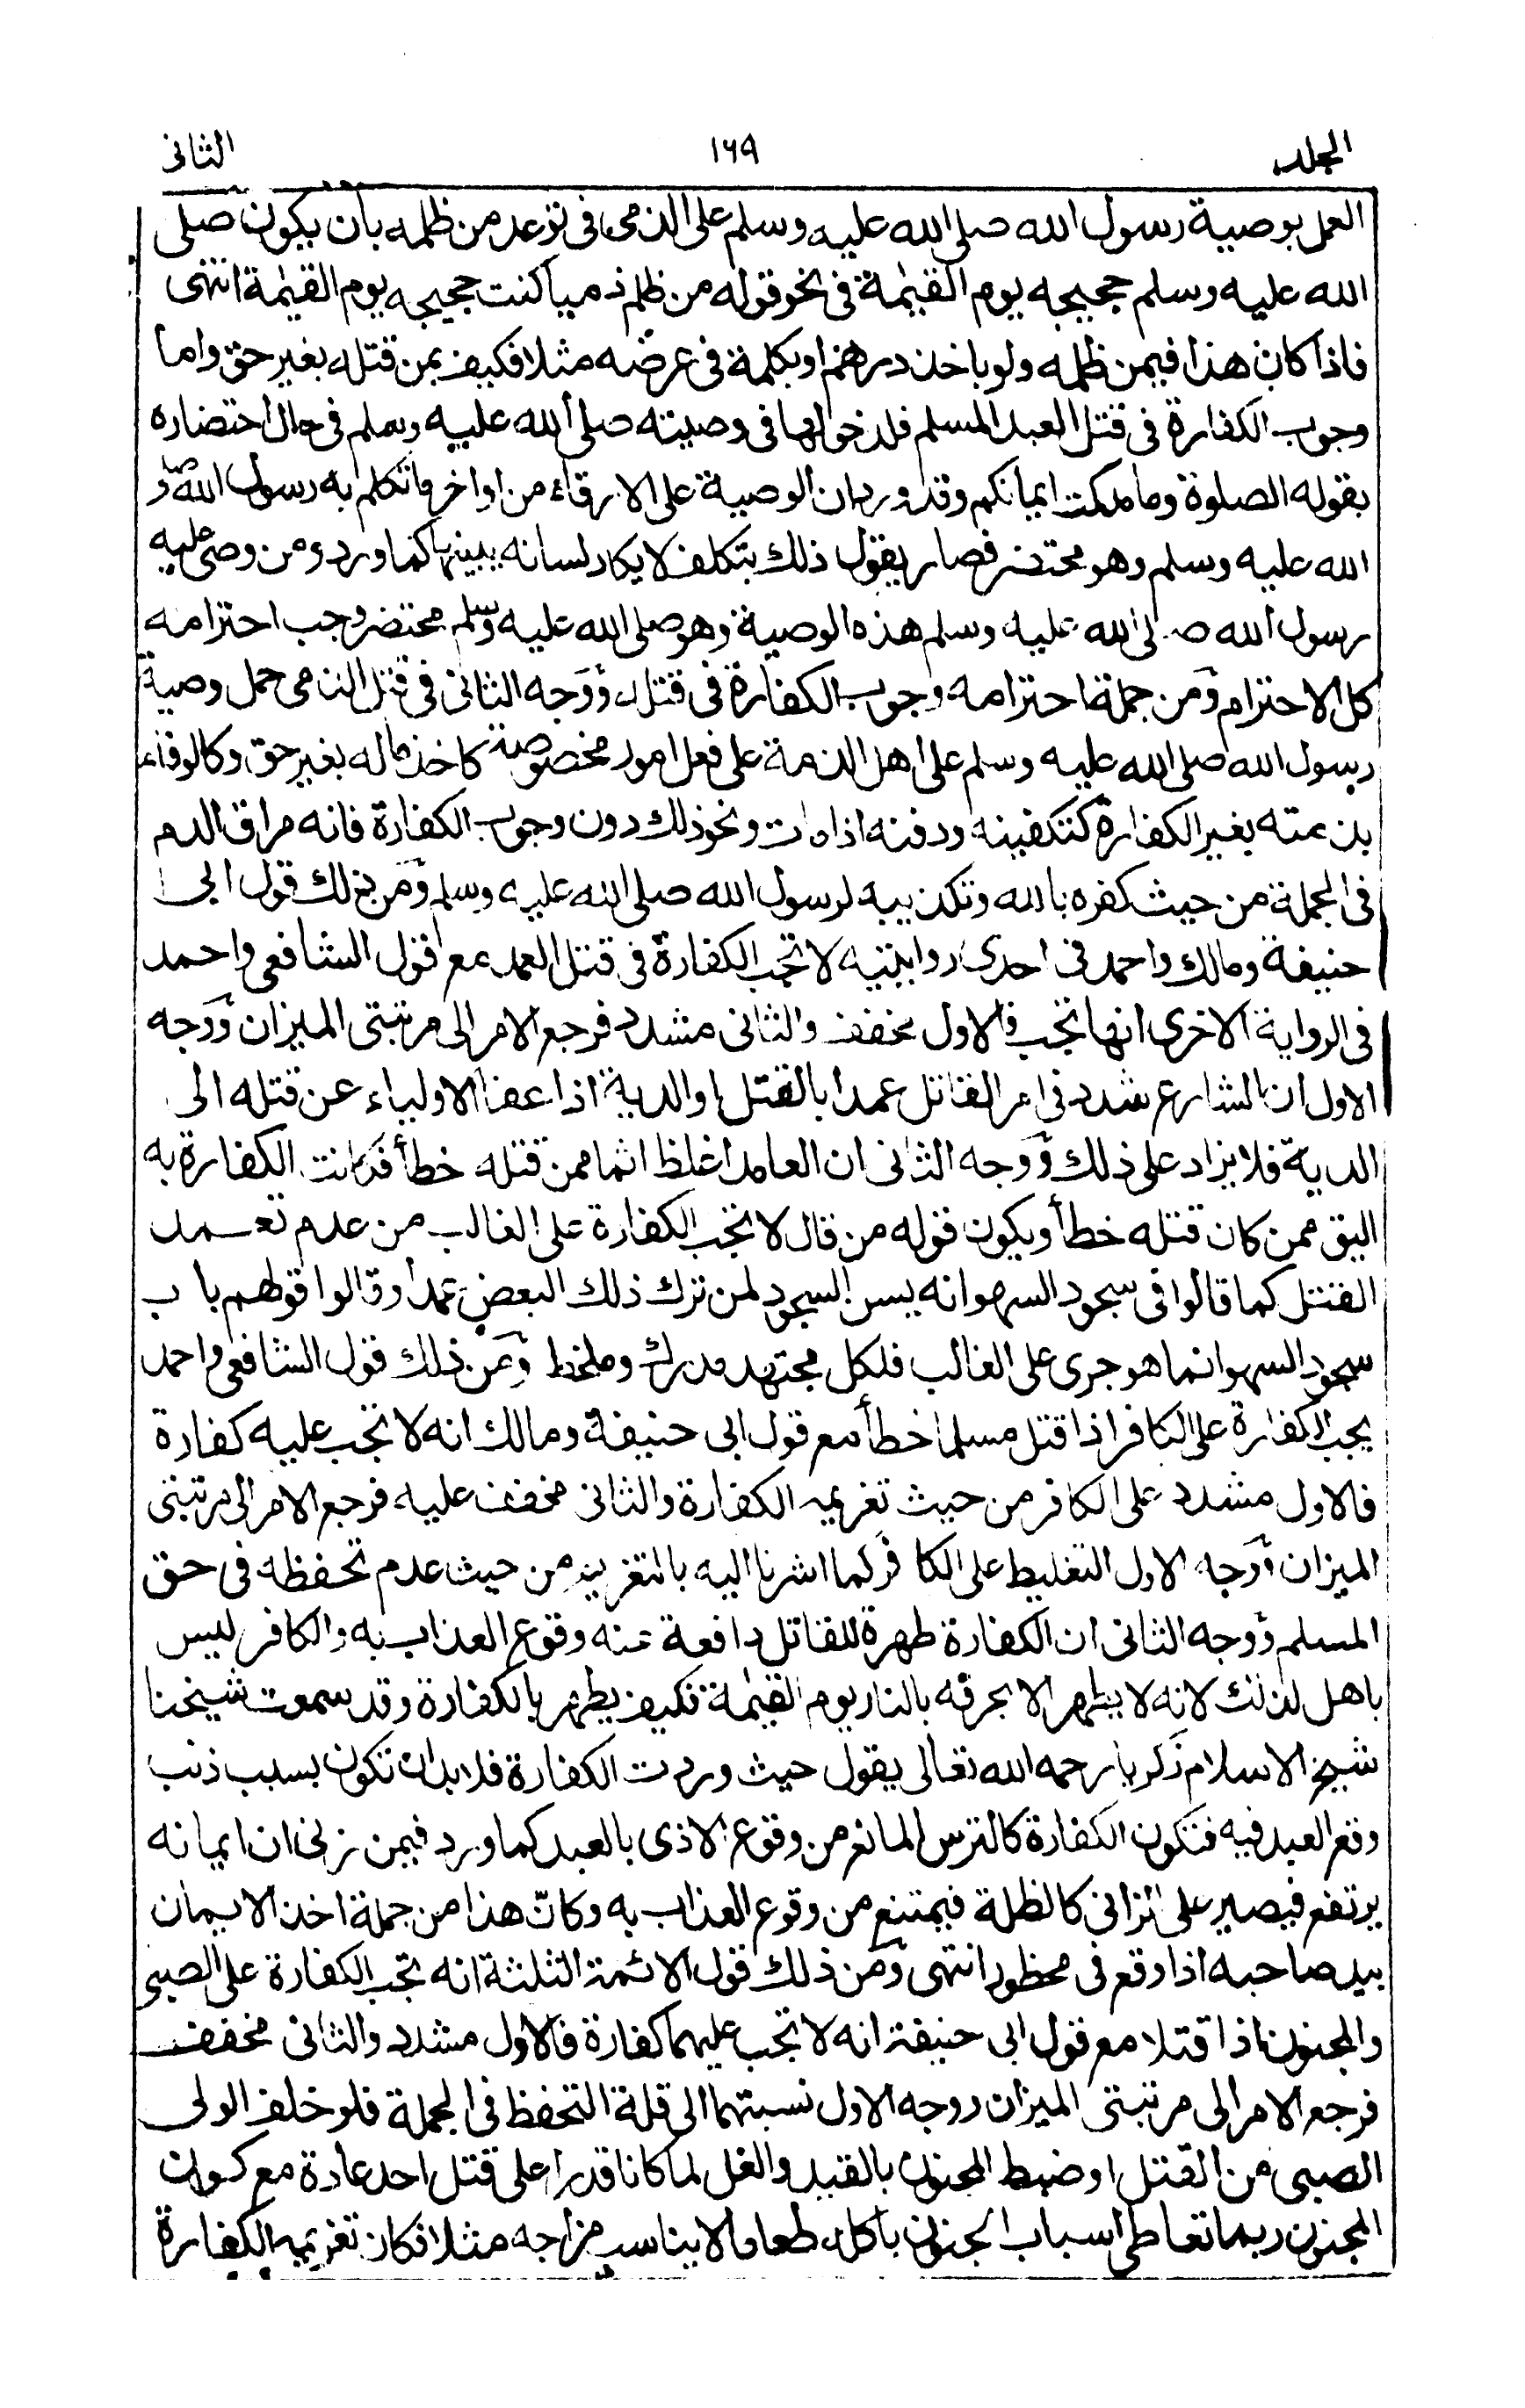 المجلد ١٦٩ الثانی
العمل بوصية رسول الله صلى الله عليه وسلم على الذمى فى توعد من ظلمه بان يكون صلى
الله عليه وسلم حجيجه يوم القيٰمة فى نحو قوله من ظلم ذميا كنت حجيجه يوم القيٰمة انتهى
فاذا كان هذا فيمن ظلمه ولو باخذ درهم او بكلمة فى عرضه مثلا فكيف بمن قتله بغير حق واما
وجوب الكفارة فى قتل العبد المسلم فلدخولها فى وصيته صلى الله عليه وسلم فى حال احتضاره
بقوله الصلوة وما ملكت ايمانكم وقد ورد ان الوصية على الارقاء من اواخر ما تكلم به رسول الله
الله عليه وسلم وهو محتضر فصار يقول ذلك بتكلف لا يكاد لسانه يبينها كما ورد ومن وصى عليه
رسول الله صلى الله عليه وسلم هذه الوصية وهو صلى الله عليه وسلم محتضر وجب احترامه
كل الاحترام ومن جملة احترامه وجوب الكفارة فى قتله ووجه الثانى فى قتل الذمى حمل وصية
رسول الله صلى الله عليه وسلم على اهل الذمة على فعل امور مخصوصة كاخذ ماله بغير حق وكالوفاء
بذمته بغير الكفارة كتكفينه ودفنه اذا مات ونحو ذلك دون وجوب الكفارة فانه مراق الدم
فى الجملة من حيث كفره بالله وتكذيبه لرسول الله صلى الله عليه وسلم ومن ذلك قول ابى
حنيفة ومالك واحمد فى احدى روايتيه لا تجب الكفارة فى قتل العمد مع قول الشافعى واحمد
فى الرواية الاخرى انها تجب فالاول مخفف والثانى مشدد فرجع الامر الى مرتبتى الميزان ووجه
الاول ان الشارع شدد فى امر القاتل عمدا بالقتل او الدية اذا عفا الاولياء عن قتله الى
الدية فلا يزاد على ذلك ووجه الثانى ان العامد اغلظ اثما ممن قتله خطأ فكانت الكفارة به
اليق ممن كان قتله خطأ ويكون قوله من قال لا تجب الكفارة على الغالب من عدم تعمد
القتل كما قالوا فى سجود السهو انه يسن السجود لمن ترك ذلك البعض عمدا وقالوا قولهم باب
سجود السهو انما هو جرى على الغالب فلكل مجتهد مدرك وملحظ ومن ذلك قول الشافعى واحمد
يجب الكفارة على الكافر اذا قتل مسلما خطأ مع قول ابى حنيفة ومالك انه لا تجب عليه كفارة
فالاول مشدد على الكافر من حيث تغريمه الكفارة والثانى مخفف عليه فرجع الامر الى مرتبتى
الميزان ووجه الاول التغليظ على الكافر كما اشرنا اليه بالتغريم من حيث عدم تحفظه فى حق
المسلم ووجه الثانى ان الكفارة طهرة للقاتل دافعة عنه وقوع العذاب به والكافر ليس
باهل لذلك لانه لا يطهر الا بحرقه بالنار يوم القيٰمة فكيف يطهر بالكفارة وقد سمعت شيخنا
شيخ الاسلام زكريا رحمه الله تعالى يقول حيث وردت الكفارة فلابدان تكون بسبب ذنب
وقع العبد فيه فتكون الكفارة كالترس المانع من وقوع الاذى بالعبد كما ورد فيمن زنى ان ايمانه
يرتفع فيصير على الزانى كالظلة فيمتنع من وقوع العذاب به وكانّ هذا من جملة اخذ الايمان
بيد صاحبه اذا وقع فى محظور انتهى ومن ذلك قول الائمة الثلثة انه تجب الكفارة على الصبى
والمجنون اذا قتلا مع قول ابى حنيفة انه لا تجب عليهما كفارة فالاول مشدد والثانى مخفف
فرجع الامر الى مرتبتى الميزان ووجه الاول نسبتهما الى قلة التحفظ فى الجملة فلو خلف الولى
الصبى من القتل او ضبط المجنون بالقيد والغل لما كانا قدرا على قتل احد عادة مع كون
المجنون ربما تعاطى اسباب الجنون باكله طعاما لا يناسب مزاجه مثلا فكان تغريمه الكفارة